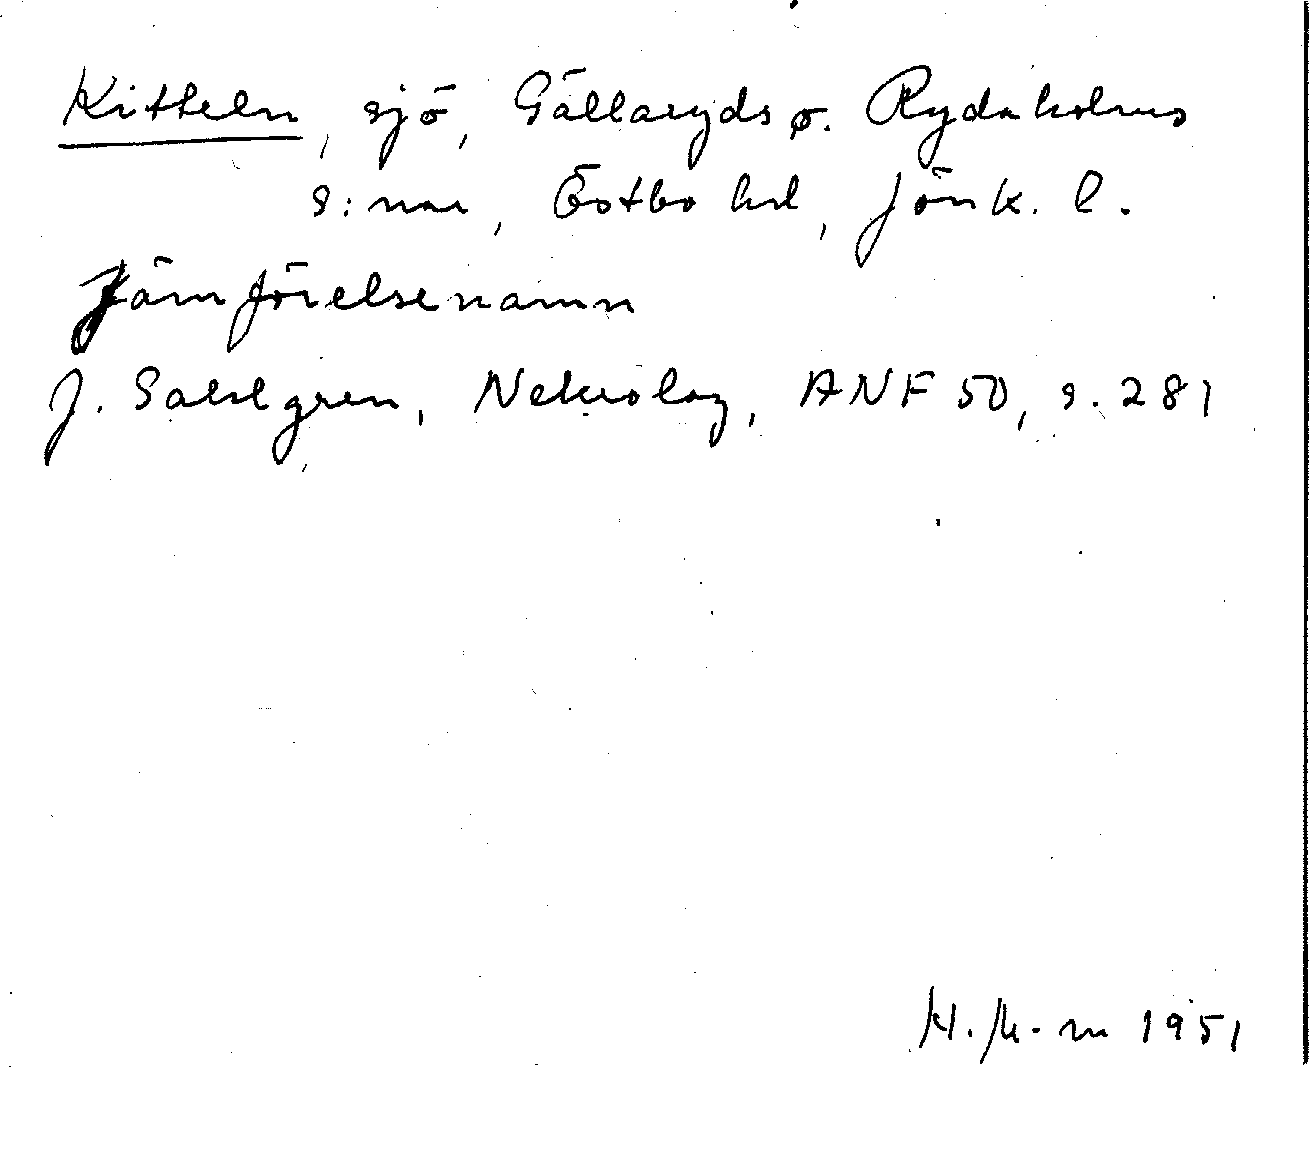 Kitteln, sjö, Gällaryds o. Rydaholms
s:nar, Östbo hd, Jönk. l.
Jämförelsenamn
J. Sahlgren, Nekrolog, ANF 50, s. 281
H. 1951